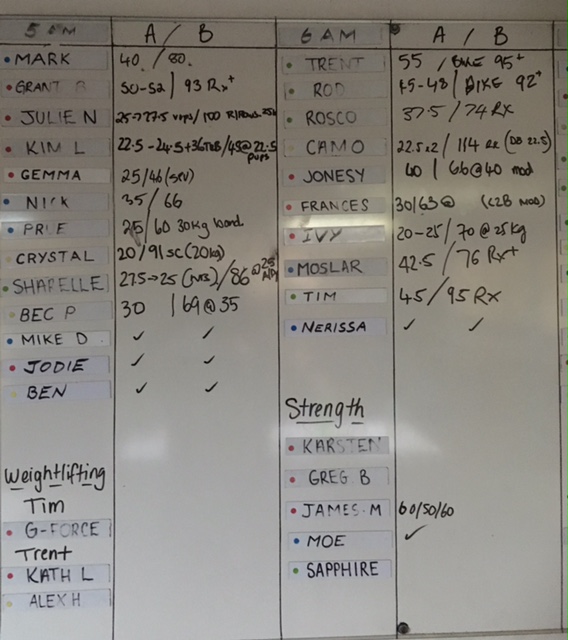 5 AM A / B
MARK 40 / 80
GRANT B 50-52 / 93 Rx+
JULIE N 25→27.5 / 100
KIM L 22.5 - 24.5 / 45@22.5
GEMMA 25/46
NICK 35 / 66
PRUE 25/60 30kg band
CRYSTAL 20/91 SC (20kg)
SHARELLE 27.5→25 / 86 @25
BEC P 30 / 69 @ 35
MIKE D ✓ ✓
JODIE ✓ ✓
BEN ✓ ✓
Weightlifting
Tim
G-FORCE
Trent
KATH L
ALEX H
6 AM A / B
TRENT 55 / BIKE 95+
ROD 45-48 / BIKE 92+
ROSCO 37.5 / 74 RX
CAMO 22.5x2 / 114 RX (DB 22.5)
JONESY 60 / 66@40 mod
FRANCES 30/63@ (C2B MOD)
IVY 20-25 / 70 @ 25kg
MOSLAR 42.5 / 76 Rx+
TIM 45 / 95 Rx
NERISSA ✓ ✓
Strength
KARSTEN
GREG B
JAMES M 60/50/60
MOE ✓
SAPPHIRE